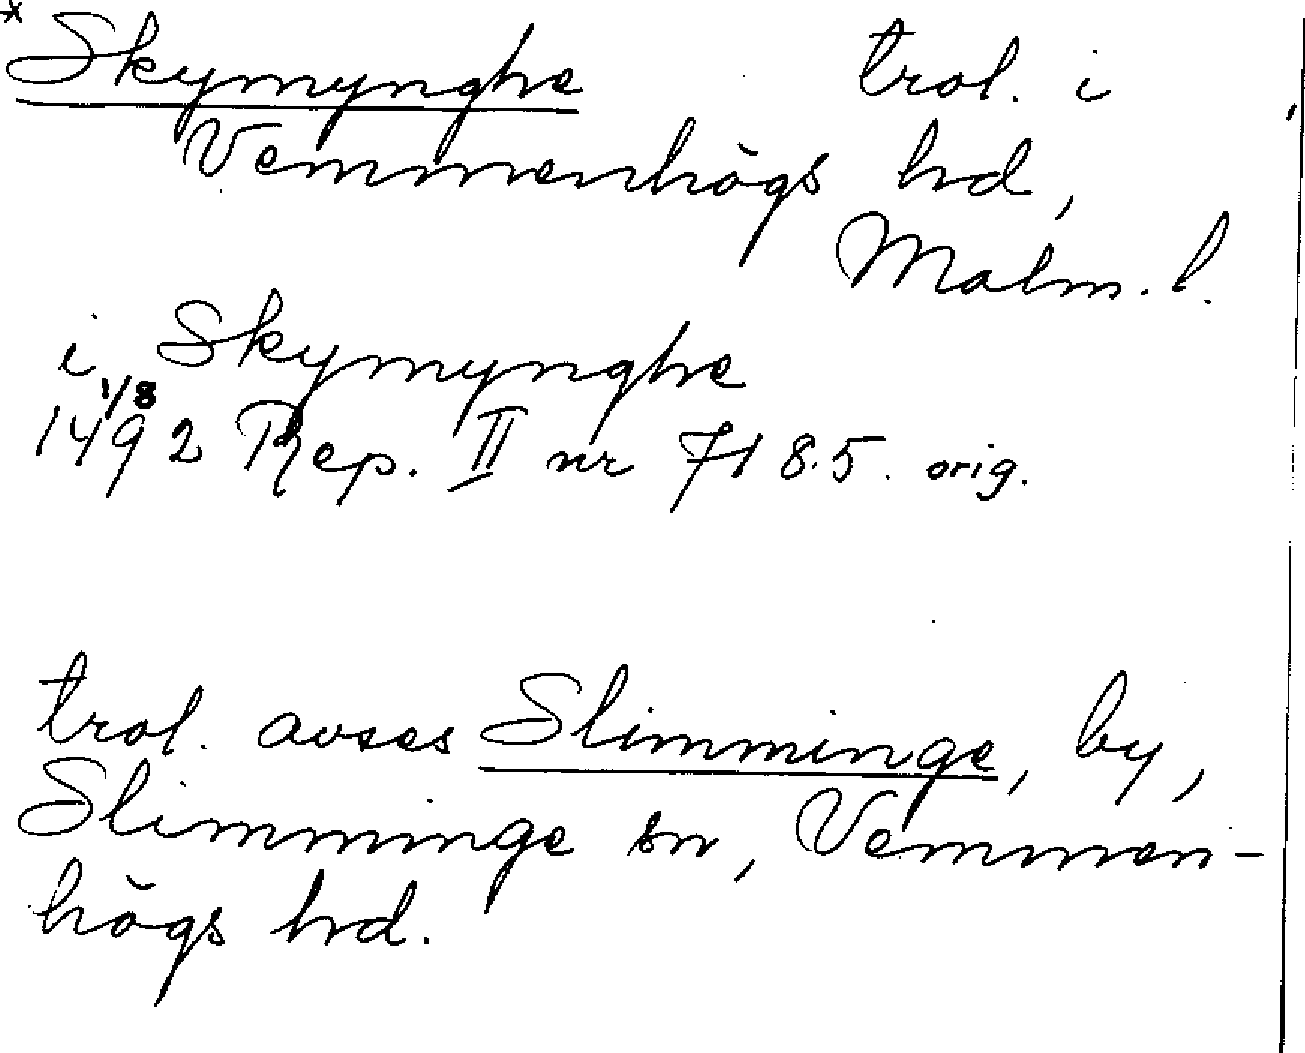 * Skymynghe trol. i
Vemmenhögs hd,
Malm. l.
i Skymynghe
1/8
1492 Rep. II nr 7185. orig.
trol. avses Slimminge, by,
Slimminge sn, Vemmen-
högs hd.